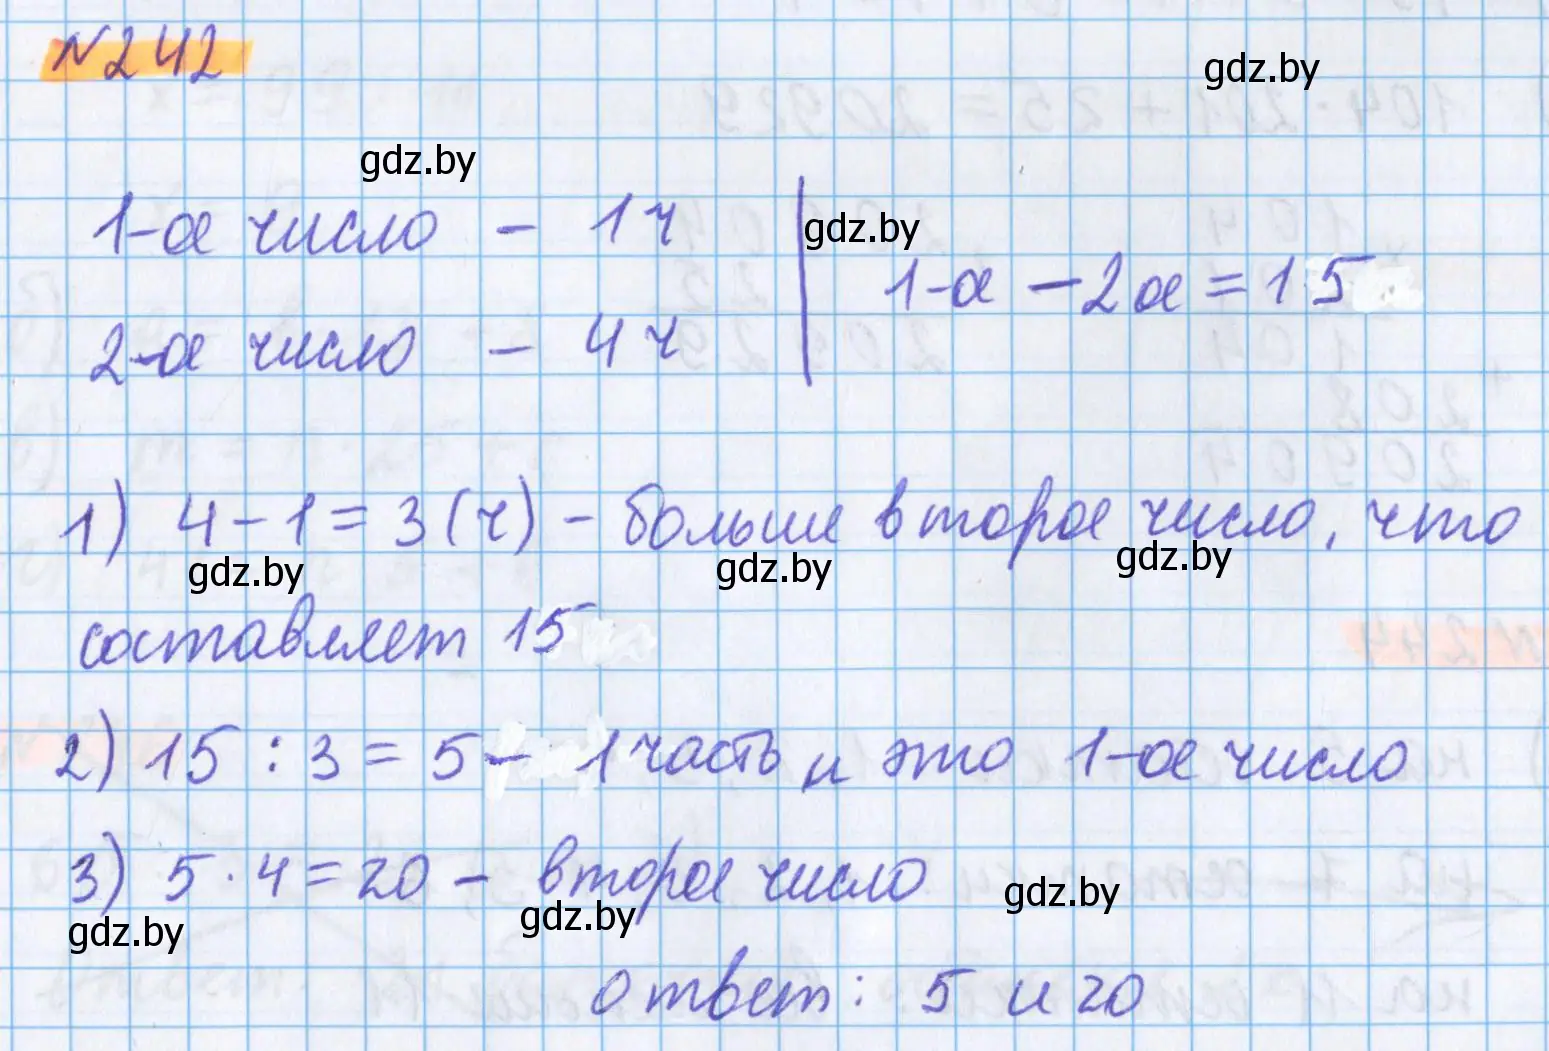 N242
gdz.by
gdz.by
1-ое число – 1ч
gdz.by
1-ое – 2ое = 15
2-ое число – 4ч
1) 4 – 1 = 3 (ч) – больше второе число, что
gdz.by gdz.by gdz.by
составляет 15
2) 15 : 3 = 5 – 1 часть и это 1-ое число
3) 5 · 4 = 20 – второе число
gdz.by gdz.by gdz.by
ответ: 5 и 20